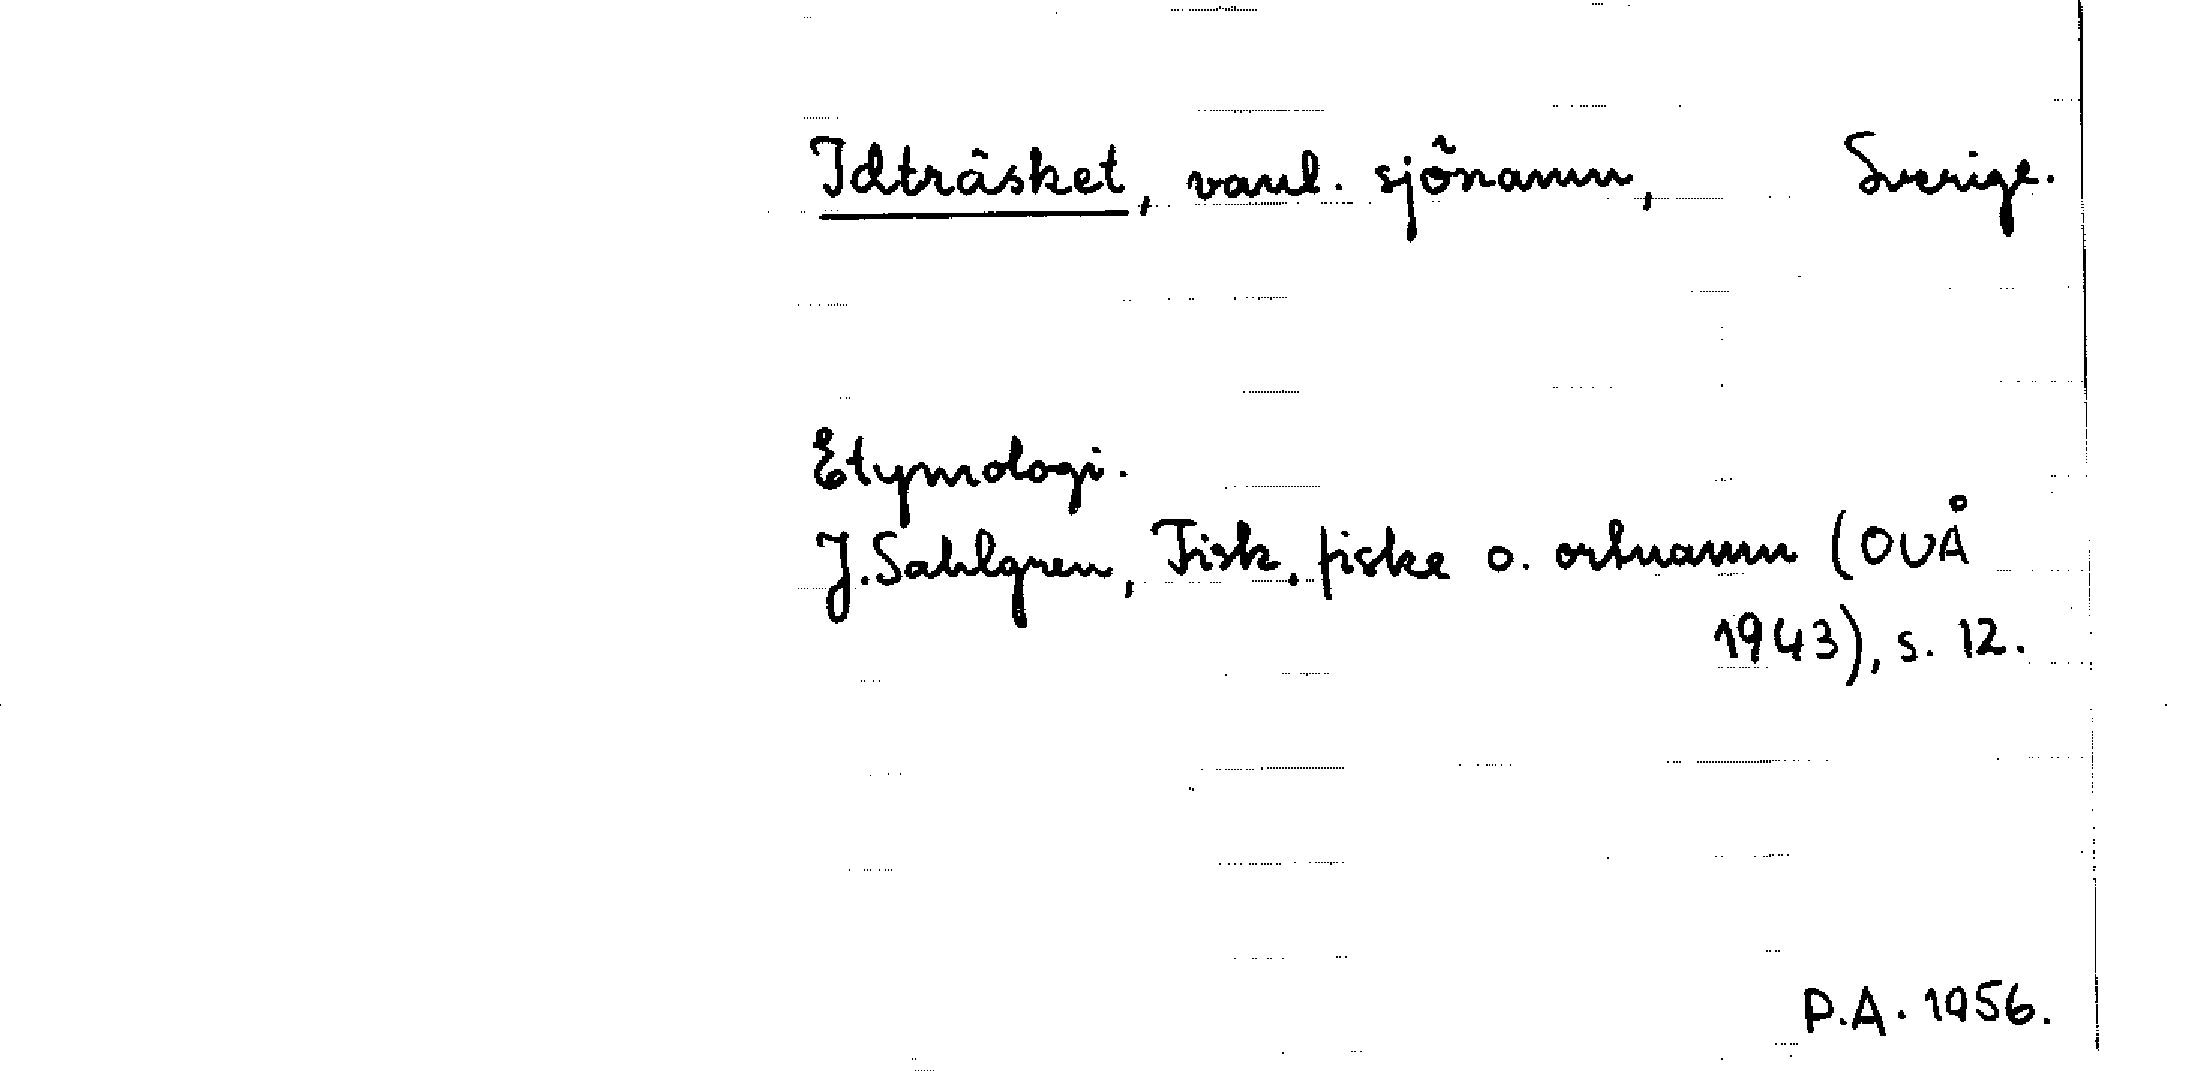 Idträsket, vanl. sjönamn, Sverige.
Etymologi.
J. Sahlgren, Fisk, fiske o. ortnamn (OUÅ
1943), s. 12.
P.A. 1956.